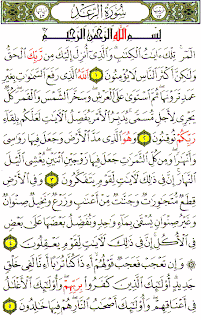 سُورَةُ الرَّعْدِ
بِسْمِ اللَّهِ الرَّحْمَٰنِ الرَّحِيمِ
الٓمٓر ۚ تِلْكَ ءَايَٰتُ الْكِتَٰبِ ۗ وَالَّذِىٓ أُنزِلَ إِلَيْكَ مِن رَّبِّكَ الْحَقُّ
وَلَٰكِنَّ أَكْثَرَ النَّاسِ لَا يُؤْمِنُونَ ١ اللَّهُ الَّذِى رَفَعَ السَّمَٰوَٰتِ بِغَيْرِ
عَمَدٍ تَرَوْنَهَا ۖ ثُمَّ اسْتَوَىٰ عَلَى الْعَرْشِ ۖ وَسَخَّرَ الشَّمْسَ وَالْقَمَرَ ۖ كُلٌّ
يَجْرِى لِأَجَلٍ مُّسَمًّى ۚ يُدَبِّرُ الْأَمْرَ يُفَصِّلُ الْءَايَٰتِ لَعَلَّكُم بِلِقَآءِ
رَبِّكُمْ تُوقِنُونَ ٢ وَهُوَ الَّذِى مَدَّ الْأَرْضَ وَجَعَلَ فِيهَا رَوَٰسِىَ
وَأَنْهَٰرًا ۖ وَمِن كُلِّ الثَّمَرَٰتِ جَعَلَ فِيهَا زَوْجَيْنِ اثْنَيْنِ ۖ يُغْشِى الَّيْلَ
النَّهَارَ ۚ إِنَّ فِى ذَٰلِكَ لَءَايَٰتٍ لِّقَوْمٍ يَتَفَكَّرُونَ ٣ وَفِى الْأَرْضِ
قِطَعٌ مُّتَجَٰوِرَٰتٌ وَجَنَّٰتٌ مِّنْ أَعْنَٰبٍ وَزَرْعٌ وَنَخِيلٌ صِنْوَانٌ
وَغَيْرُ صِنْوَانٍ يُسْقَىٰ بِمَآءٍ وَٰحِدٍ وَنُفَضِّلُ بَعْضَهَا عَلَىٰ بَعْضٍ
فِى الْأُكُلِ ۚ إِنَّ فِى ذَٰلِكَ لَءَايَٰتٍ لِّقَوْمٍ يَعْقِلُونَ ٤
وَإِن تَعْجَبْ فَعَجَبٌ قَوْلُهُمْ أَءِذَا كُنَّا تُرَٰبًا أَءِنَّا لَفِى خَلْقٍ
جَدِيدٍ ۗ أُو۟لَٰٓئِكَ الَّذِينَ كَفَرُوا۟ بِرَبِّهِمْ ۖ وَأُو۟لَٰٓئِكَ الْأَغْلَٰلُ
فِىٓ أَعْنَاقِهِمْ ۖ وَأُو۟لَٰٓئِكَ أَصْحَٰبُ النَّارِ ۖ هُمْ فِيهَا خَٰلِدُونَ ٥